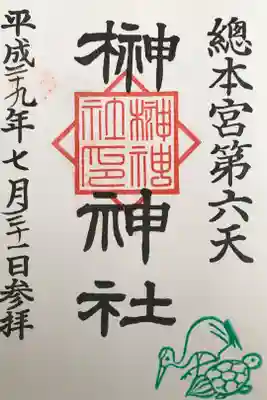 總本宮第六天
榊神社
榊神
社印
平成二十九年七月三十一日参拝